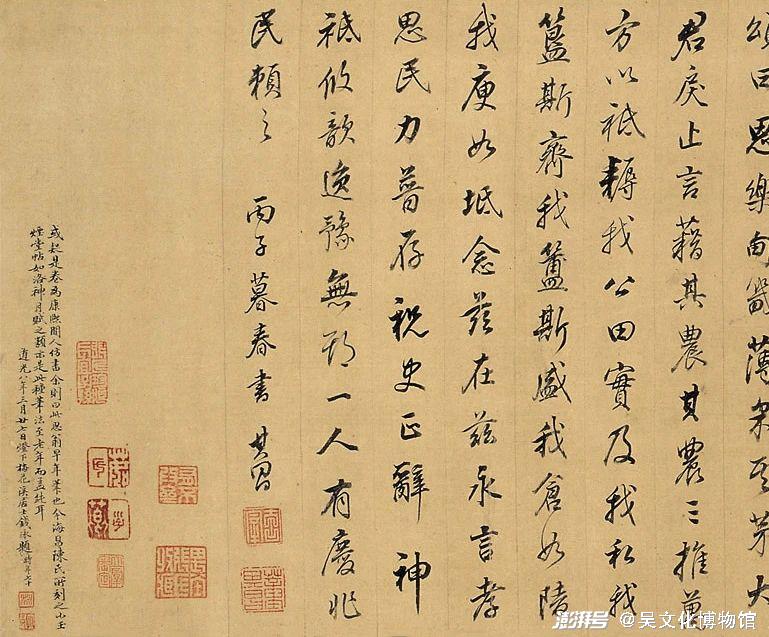 頌曰思樂甸畿薄采其茅大
君戾止言藉其農其農三推萬
方以祗耨我公田實及我私我
簋斯齊我簠斯盛我倉如陵
我庾如坻念茲在茲永言孝
思民力普存祝史正辭神
祗攸歆逸豫無期一人有慶兆
民賴之 丙子暮春書 其昌
或疑是卷為康熙間人仿書余則曰此思翁早年筆也今海昌陳氏所刻之小玉
煙堂帖如洛神月賦之類亦是此種筆法至老年而益純耳
道光八年三月廿七日燈下梅花溪居士錢泳題時年七十
澎湃号@吴文化博物馆